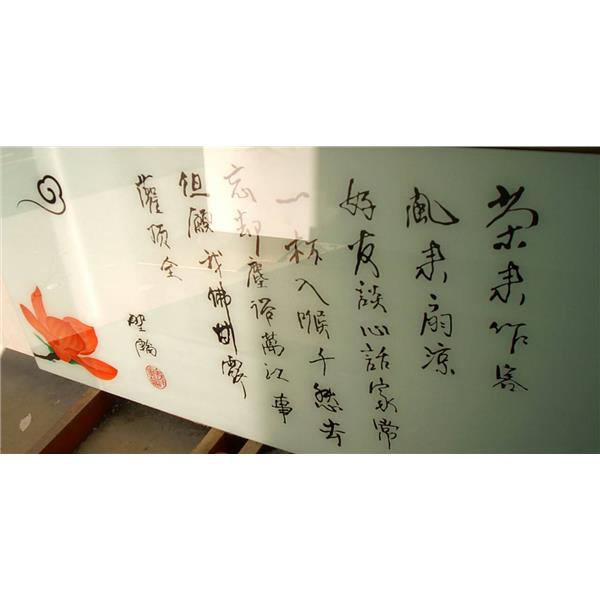 茶来作客
風来扇凉
好友談心話家常
一杯入喉千愁去
忘却塵俗萬江事
但願我佛甘露
灌頂全